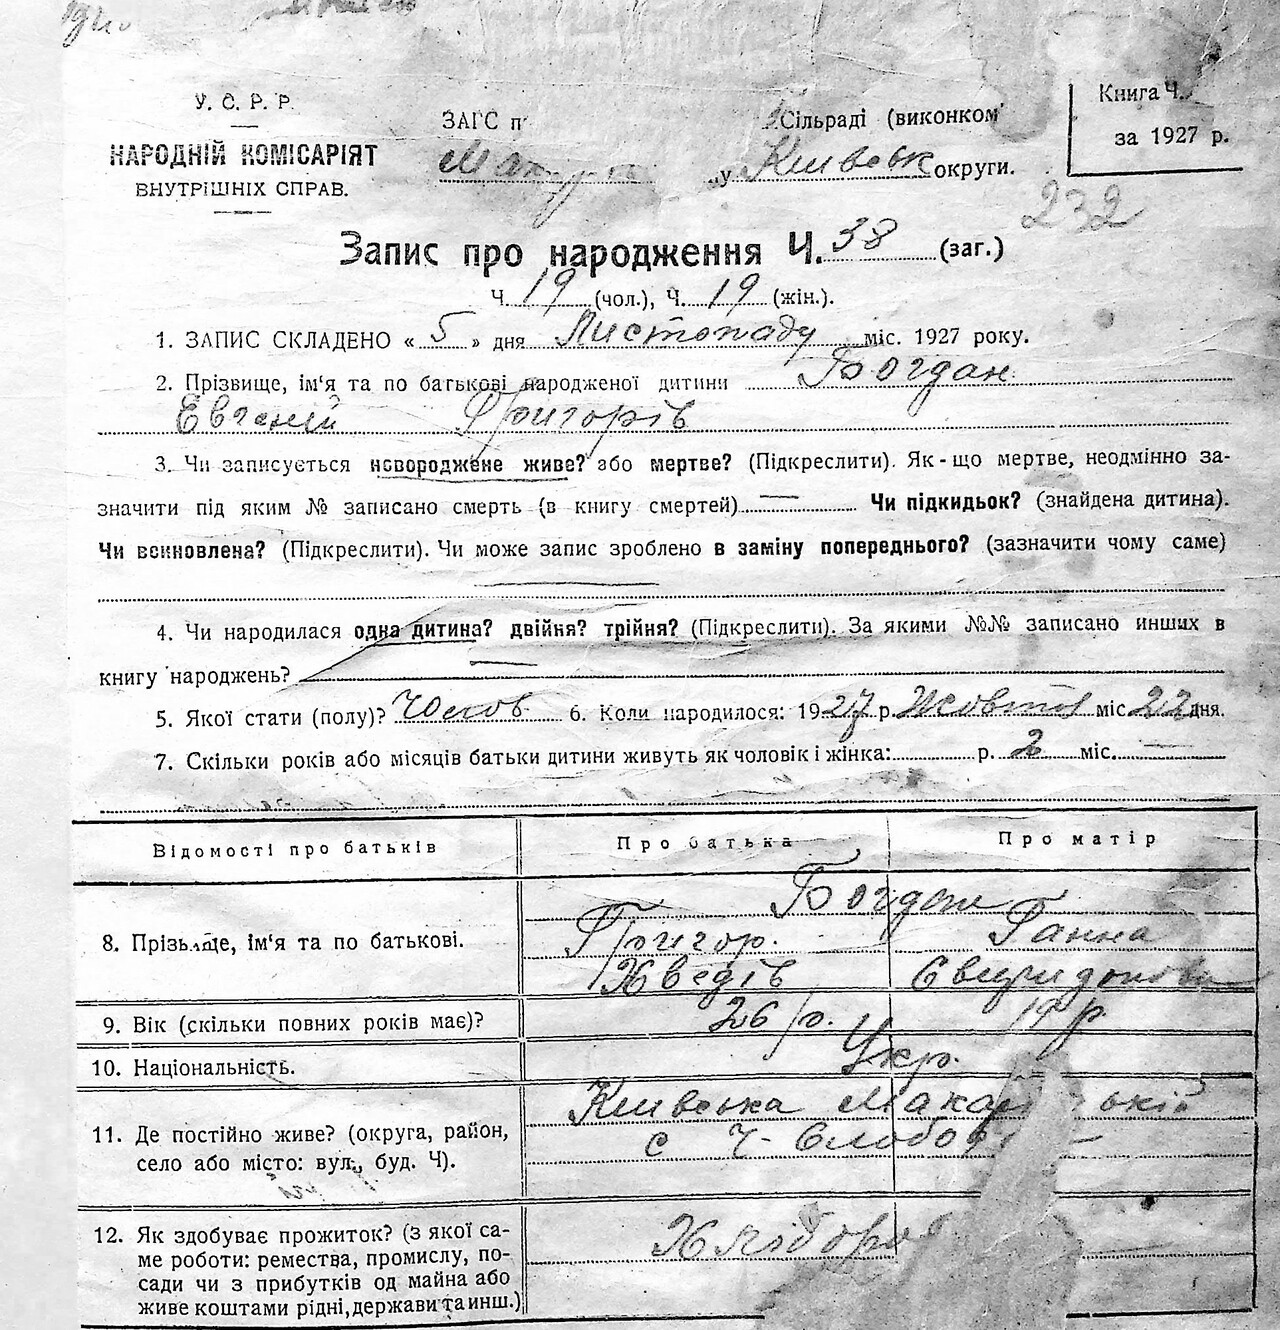 У. С. Р. Р.
НАРОДНІЙ КОМІСАРІЯТ
ВНУТРІШНІХ СПРАВ.
ЗАГС п
Сільраді (виконком
у Київськ округи.
Книга Ч.
за 1927 р.
232
Запис про народження Ч. 38 (заг.)
Ч. 19 (чол.), Ч. 19 (жін.).
1. ЗАПИС СКЛАДЕНО « 5 » дня Листопаду міс. 1927 року.
2. Прізвище, ім'я та по батькові народженої дитини Богдан
Евгеній Григорів
3. Чи записується новороджене живе? або мертве? (Підкреслити). Як-що мертве, неодмінно за-
значити під яким № записано смерть (в книгу смертей) Чи підкидьок? (знайдена дитина).
Чи всиновлена? (Підкреслити). Чи може запис зроблено в заміну попереднього? (зазначити чому саме)
4. Чи народилася одна дитина? двійня? трійня? (Підкреслити). За якими №№ записано инших в
книгу народжень?
5. Якої стати (полу)? Чолов. 6. Коли народилося: 1927 р. Жовтня міс 22 дня.
7. Скільки років або місяців батьки дитини живуть як чоловік і жінка: р. 2 міс.
Відомості про батьків
Про батька
Про матір
8. Прізвище, ім'я та по батькові.
Богдан
Григор. Ганна
9. Вік (скільки повних років має)?
26 р. 19 р.
10. Національність.
Укр.
11. Де постійно живе? (округа, район,
село або місто: вул., буд. Ч).
Київська
с Ч-Слобода
12. Як здобуває прожиток? (з якої са-
ме роботи: ремества, промислу, по-
сади чи з прибутків од майна або
живе коштами рідні, держави та инш.)
Хлібороб